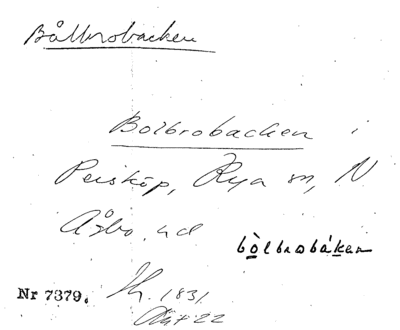 Bålbrobacken
Bolbrobacken i
Perstorp, Rya sn, N
Åsbo hd
bòlbrobákən
Nr 7379. 1831
22